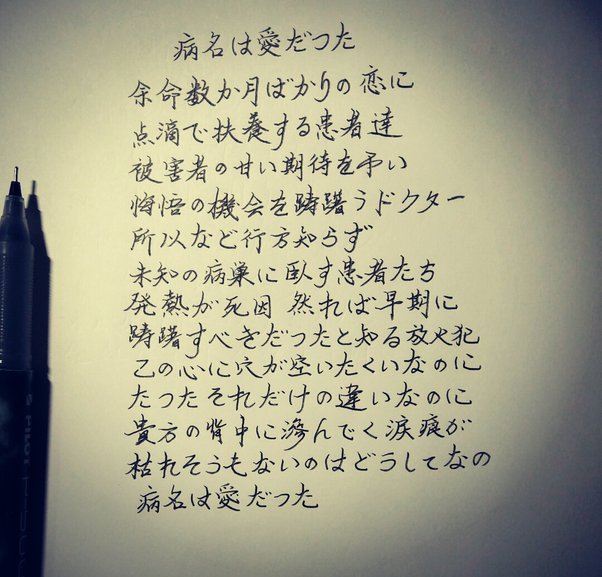 病名は愛だった
余命数か月ばかりの恋に
点滴で扶養する患者達
被害者の甘い期待を弔い
悔悟の機会を躊躇うドクター
所以など行方知らず
未知の病巣に臥す患者たち
発熱が死因 然れば早期に
躊躇すべきだったと知る放火犯
この心に穴が空いたくいなのに
たったそれだけの違いなのに
貴方の背中に滲んでく涙痕が
枯れそうもないのはどうしてなの
病名は愛だった
PILOT